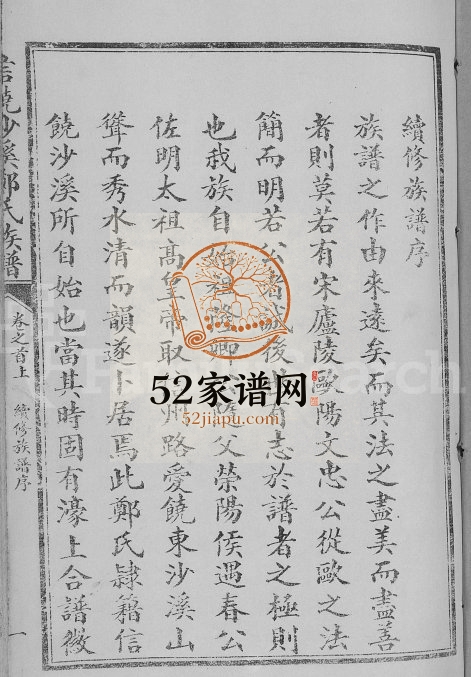 續修族譜序
族譜之作由來遠矣而其法之盡美而盡善
者則莫若有宋廬陵歐陽文忠公從歐之法
簡而明若公者後有志於譜者之極則
也我族自始祖卿父榮陽侯遇春公
佐明太祖高皇帝取州路愛饒東沙溪山
聳而秀水清而韻遂卜居焉此鄭氏隸籍信
饒沙溪所自始也當其時固有濠上合譜徽
信饒沙溪鄭氏族譜
卷之首上
續修族譜序
一
52家谱网
52jiapu.com